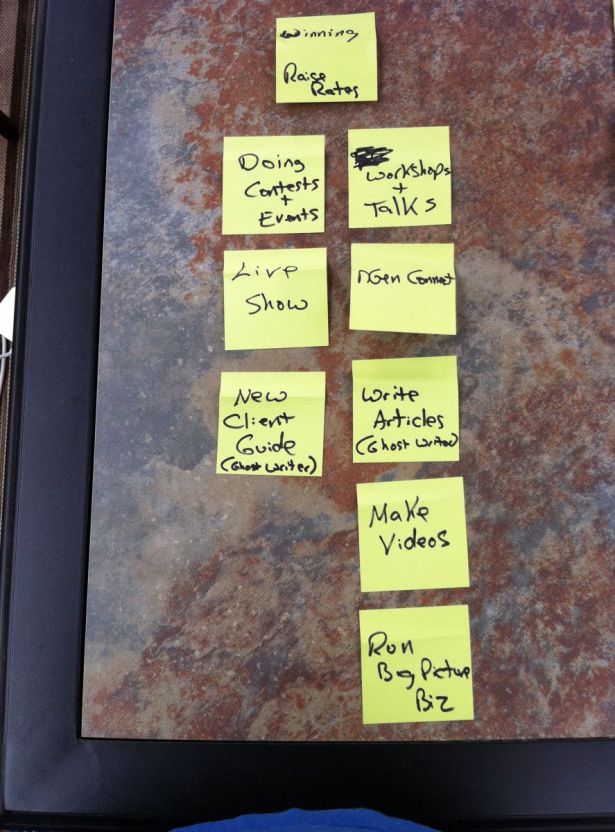 Winning
Raise
Rates
Doing
Contests
+
Events
Workshops
+
Talks
Live
Show
NGen Connect
New
Client
Guide
(Ghost Writer)
Write
Articles
(Ghost Writer)
Make
Videos
Run
Big Picture
Biz